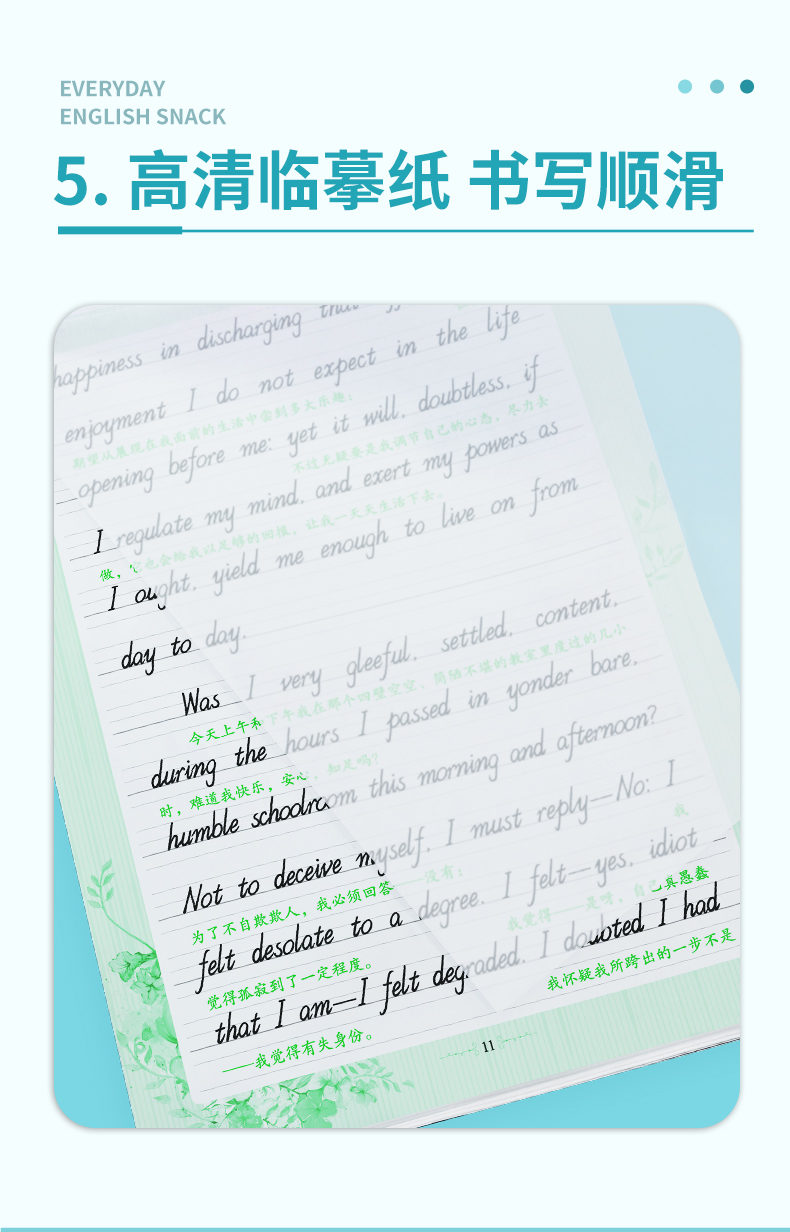 EVERYDAY
ENGLISH SNACK
5. 高清临摹纸 书写顺滑
happiness in discharging that
enjoyment I do not expect in the life
期望从展现在我面前的生活中尝到多大乐趣;
opening before me: yet it will, doubtless, if
不过无疑要是我调节自己的心态, 尽力去
I regulate my mind, and exert my powers as
做, 它也会给我以足够的回报, 让我一天天生活下去。
I ought, yield me enough to live on from
day to day.
Was I very gleeful, settled, content,
今天上午和下午我在那个四壁空空、简陋不堪的教室里度过的几小
during the hours I passed in yonder bare,
时, 难道我快乐, 安心, 知足吗?
humble schoolroom this morning and afternoon?
Not to deceive myself, I must reply—No: I
为了不自欺欺人, 我必须回答——没有: 我
felt desolate to a degree. I felt—yes, idiot
觉得孤寂到了一定程度。 我觉得——是呀, 自己真愚蠢
that I am—I felt degraded. I doubted I had
——我觉得有失身份。 我怀疑我所跨出的一步不是
11